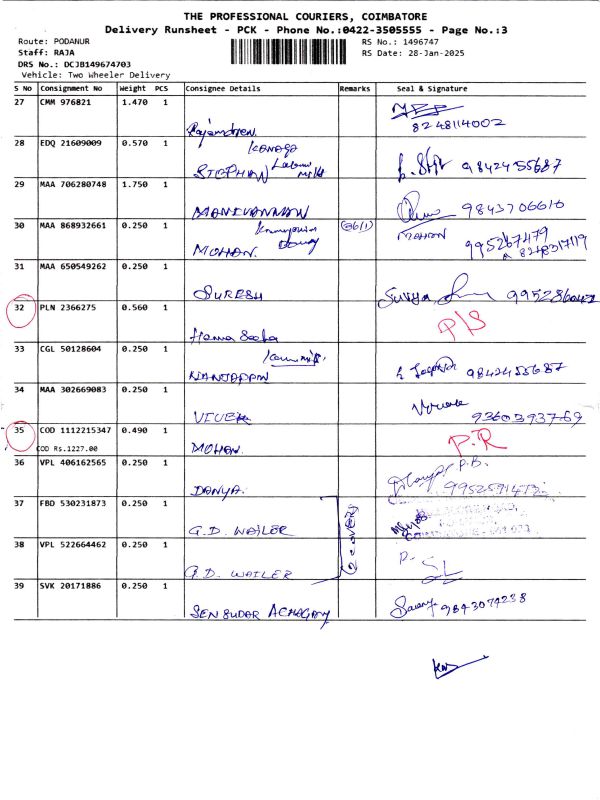 THE PROFESSIONAL COURIERS, COIMBATORE
Delivery Runsheet - PCK - Phone No.:0422-3505555 - Page No.:3
Route: PODANUR
RS No.: 1496747
Staff: RAJA
RS Date: 28-Jan-2025
DRS No.: DCJB149674703
Vehicle: Two Wheeler Delivery
S No Consignment No Weight PCS Consignee Details Remarks Seal & Signature
27 CMM 976821 1.470 1
8248114002
28 EDQ 21609009 0.570 1
STEPHAN 9842455687
29 MAA 706280748 1.750 1
MANIVANNAN 9843706610
30 MAA 868932661 0.250 1
MOHAN. MOHAN 995267479
31 MAA 650549262 0.250 1
SURESH Suriya
32 PLN 2366275 0.560 1 P/S
33 CGL 50128604 0.250 1
9842455687
34 MAA 302669083 0.250 1
VIVEK 9360393769
35 COD 1112215347 0.490 1 P.R
COD Rs.1227.00 MOHAN.
36 VPL 406162565 0.250 1 P.B.
DANYA.
37 FBD 530231873 0.250 1
G.D. WAILER
2 COVERS
38 VPL 522664462 0.250 1
G.D. WAILER
39 SVK 20171886 0.250 1
SENSUDAR 9843074238